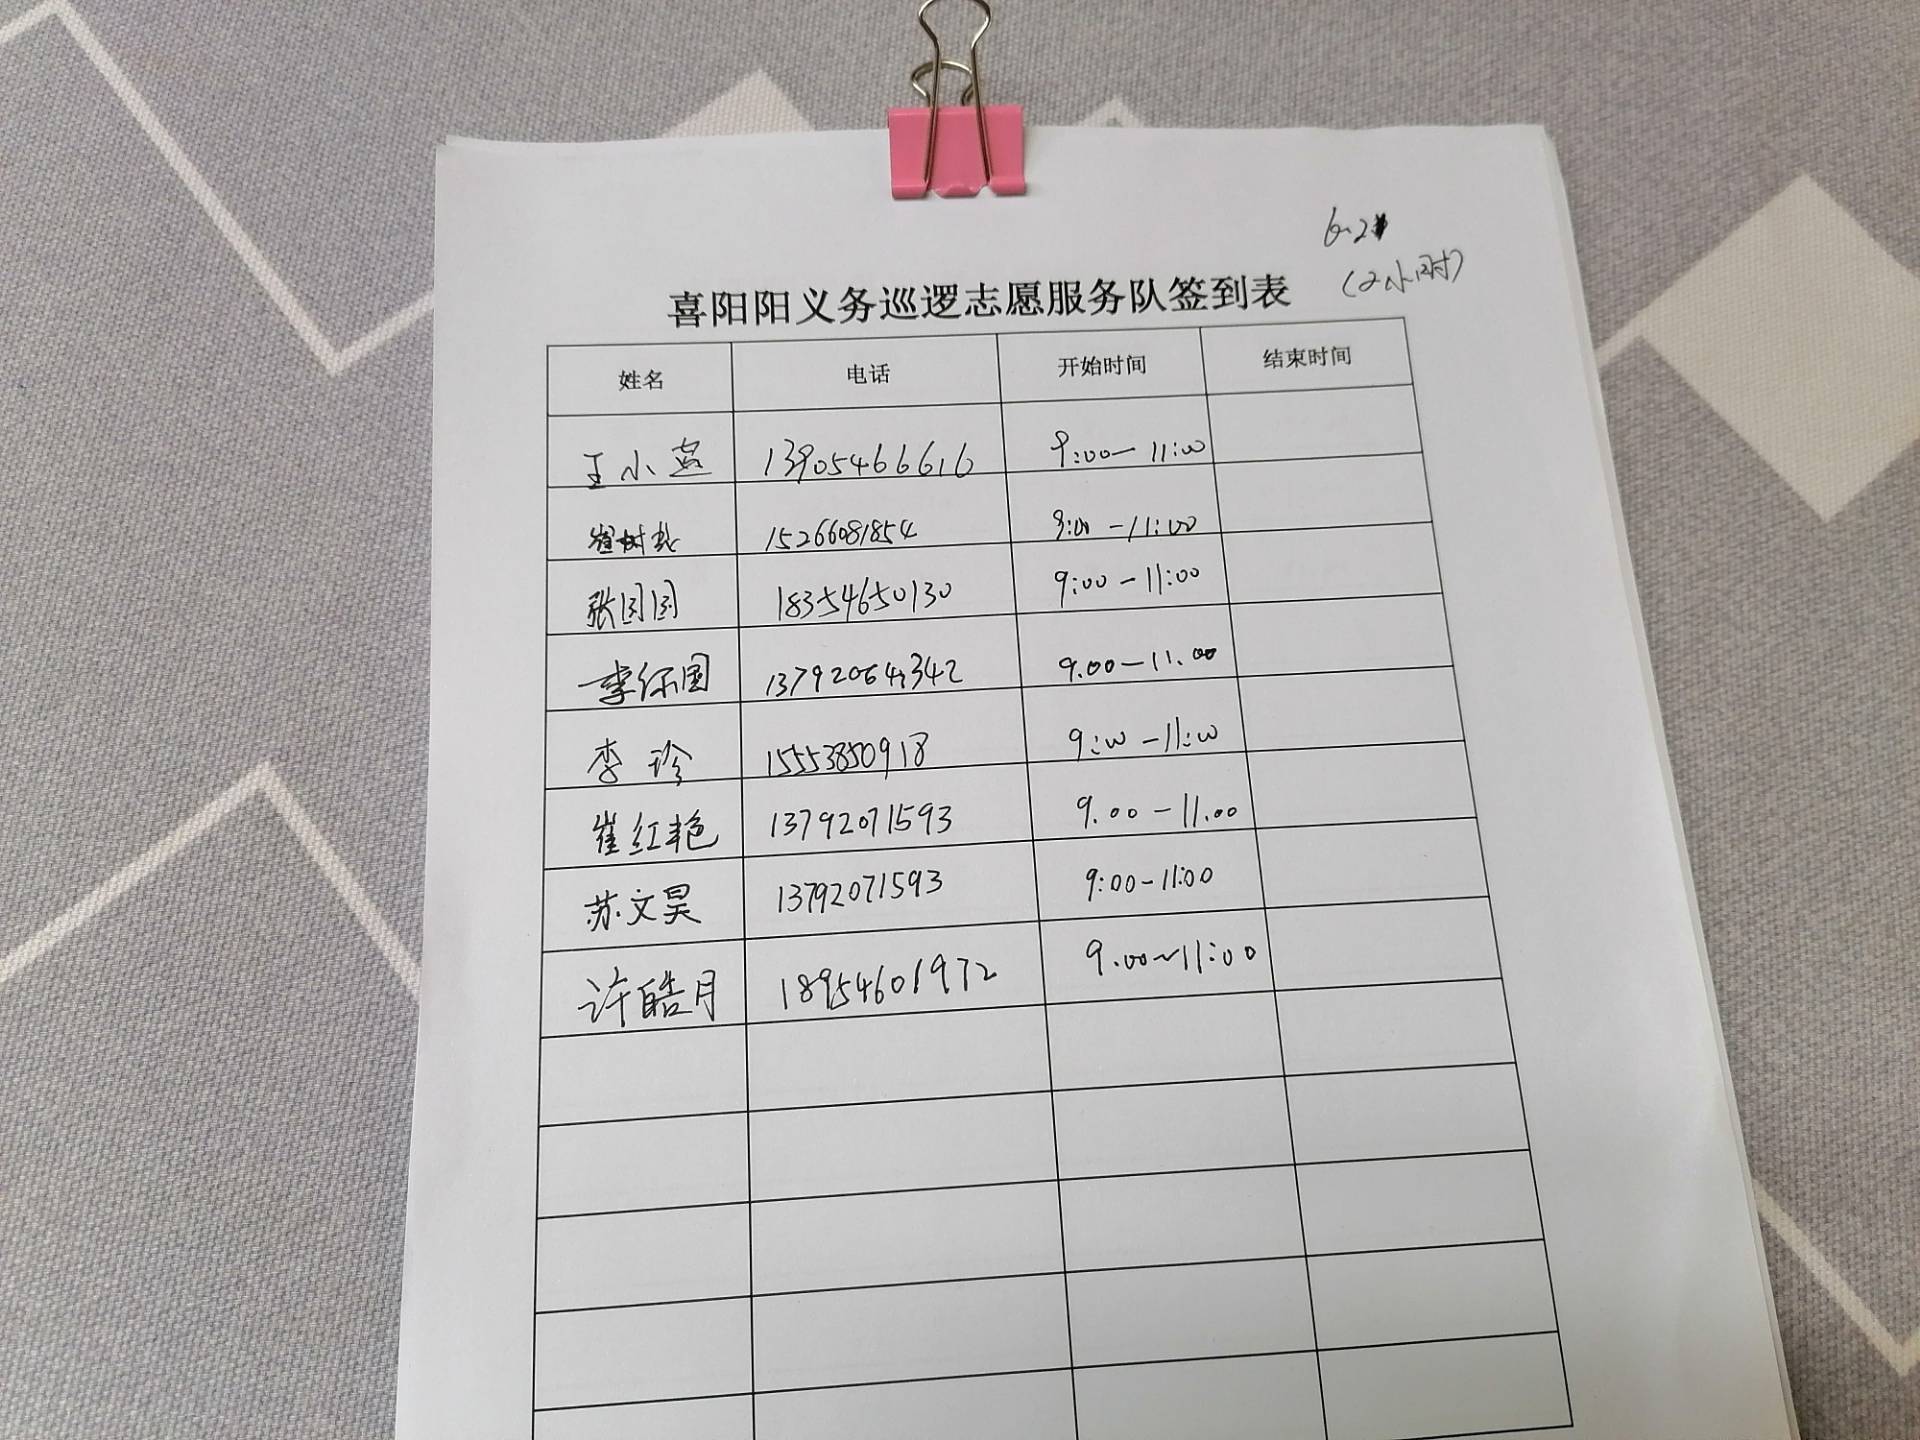 6.2
(2小时)
喜阳阳义务巡逻志愿服务队签到表
姓名 电话 开始时间 结束时间
王小 13905466616 9:00—11:00
崔树 15266081854 9:00-11:00
张国国 18354650130 9:00-11:00
李保国 13792064342 9.00—11.00
李珍 15553850918 9:00-11:00
崔红艳 13792071593 9.00-11.00
苏文昊 13792071593 9:00-11:00
许皓月 18954601972 9.00~11:00